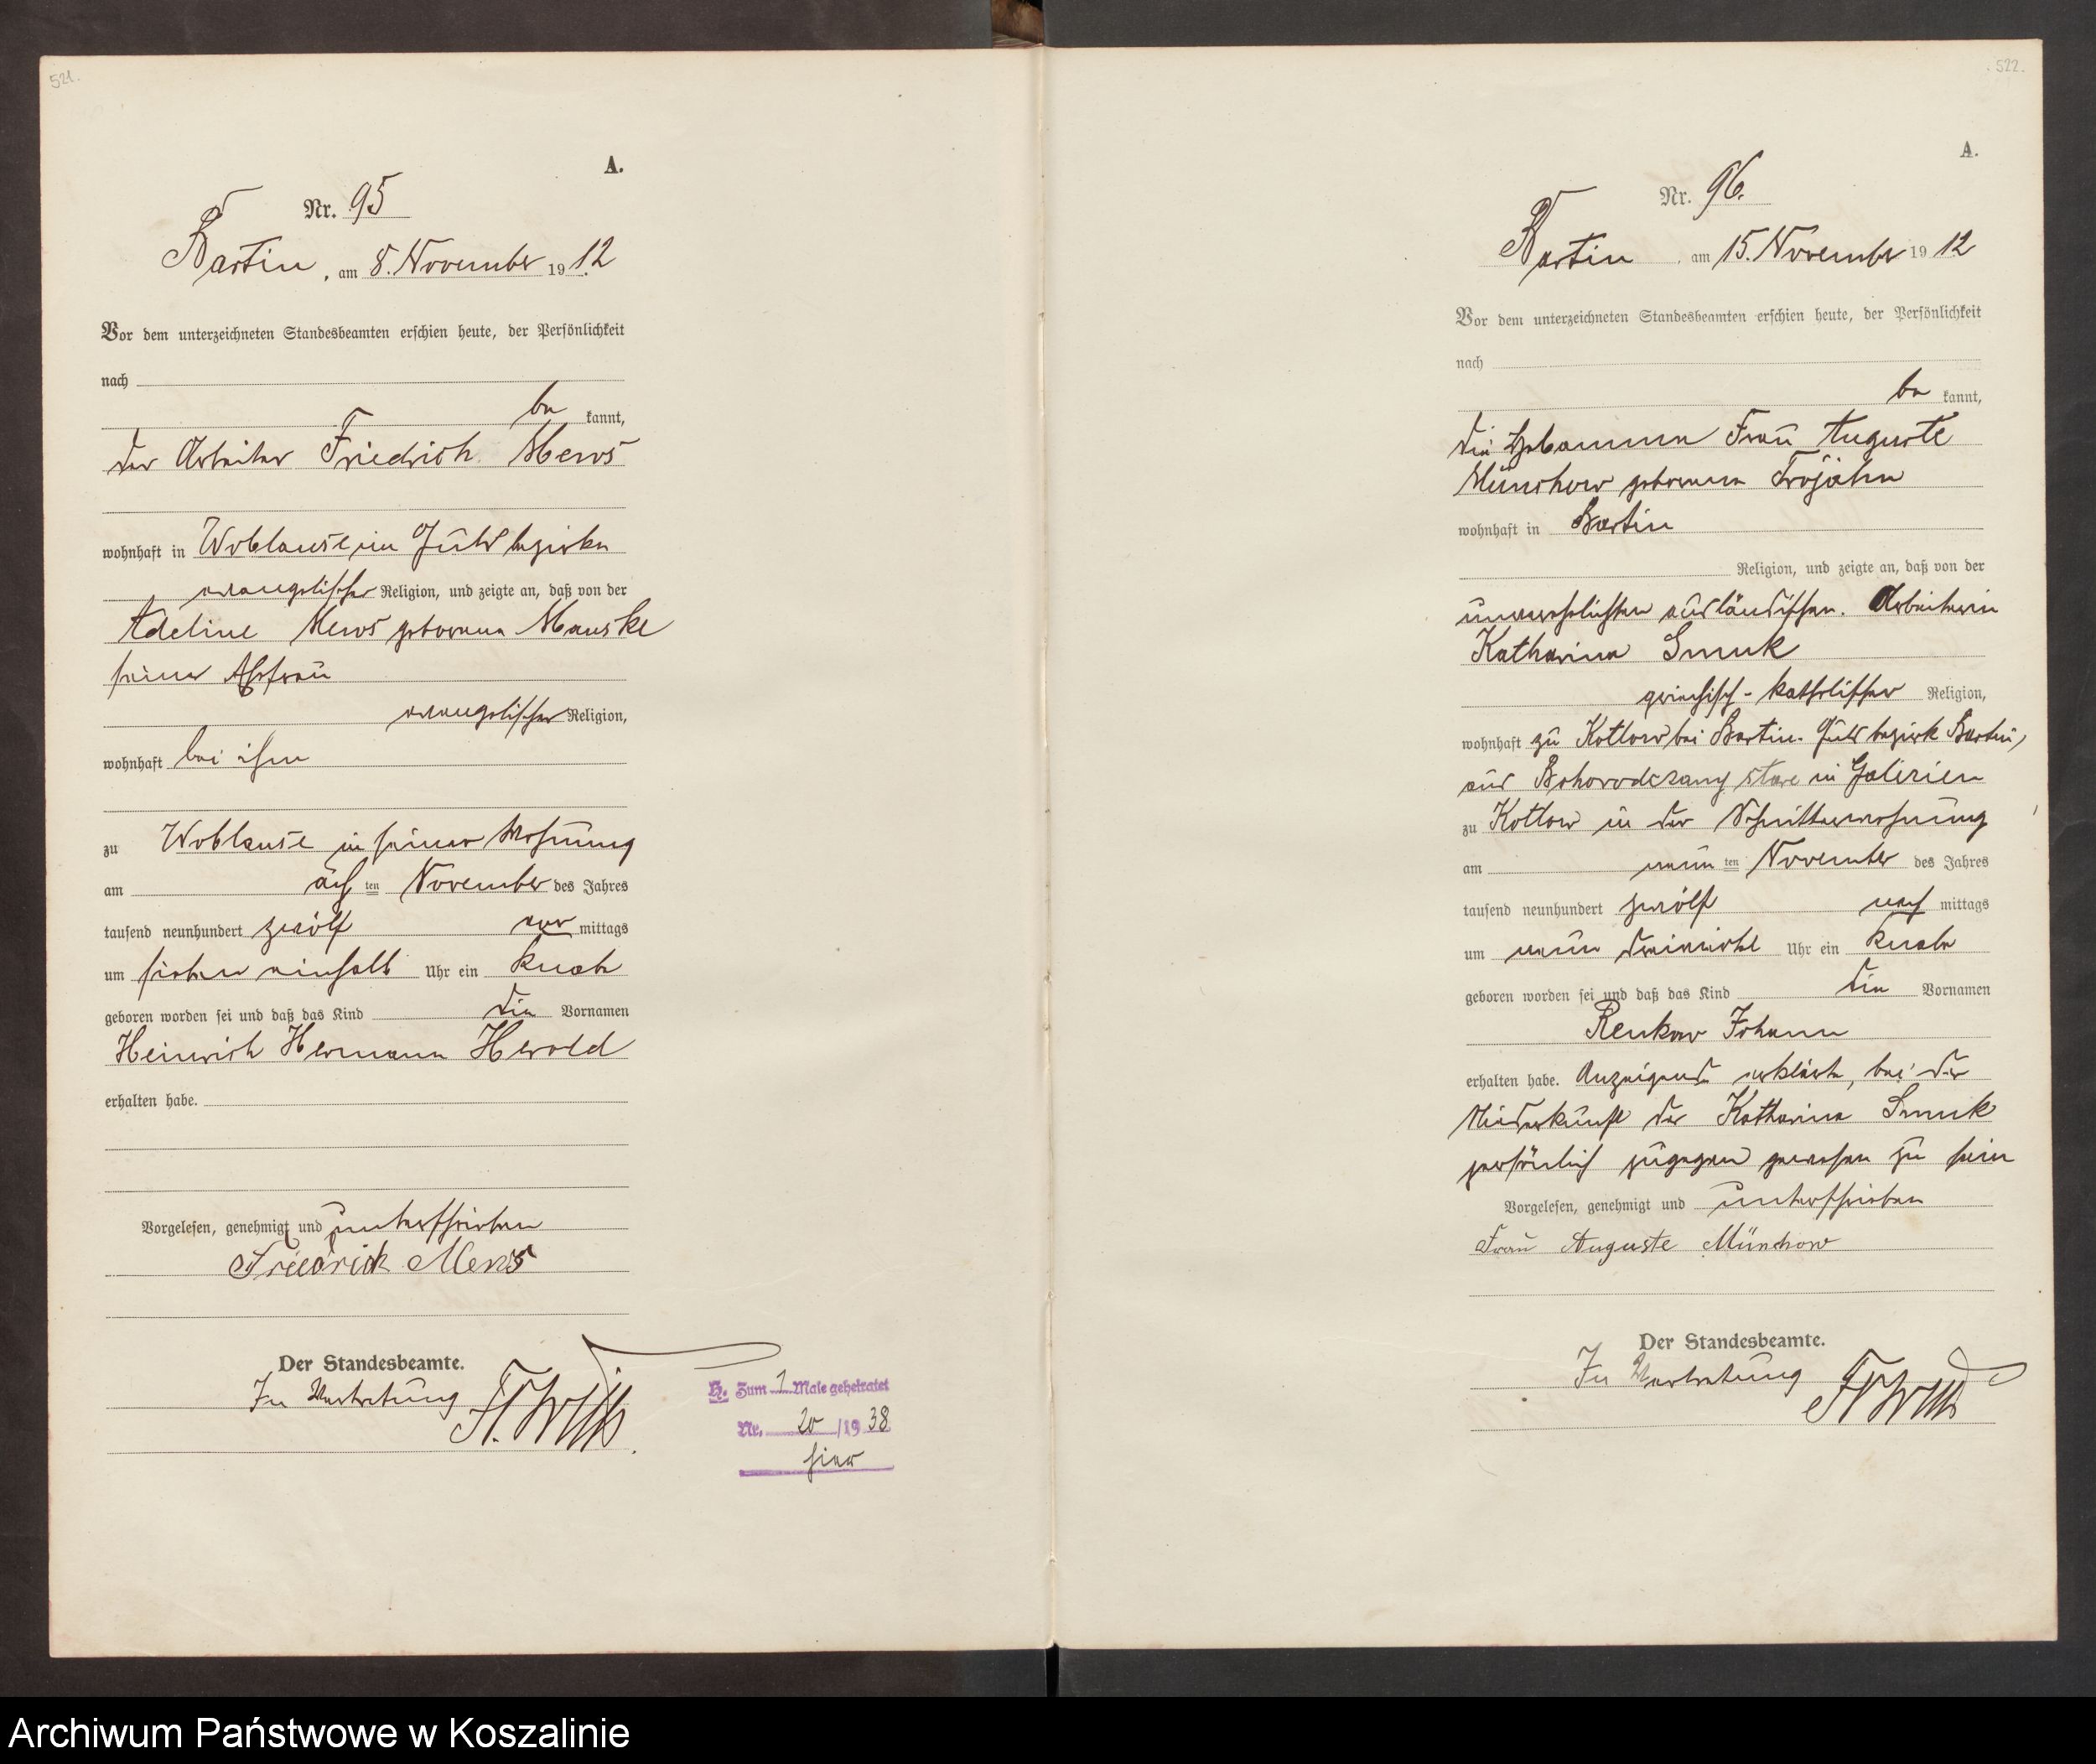 521.
A.
Nr. 95
Bartin, am 8. November 1912
Vor dem unterzeichneten Standesbeamten erschien heute, der Persönlichkeit
nach
be kannt,
der Arbeiter Friedrich Mews
wohnhaft in Woblanse im Gutsbezirke
evangelischer Religion, und zeigte an, daß von der
Adeline Mews geborenen Manske
seiner Ehefrau
evangelischer Religion,
wohnhaft bei ihm
zu Woblanse in seiner Wohnung
am acht ten November des Jahres
tausend neunhundert zwölf vor mittags
um sieben einhalb Uhr ein Knabe
geboren worden sei und daß das Kind die Vornamen
Heinrich Hermann Herold
erhalten habe.
Vorgelesen, genehmigt und unterschrieben
Friedrich Mews
Der Standesbeamte.
In Vertretung
H. Zum 1 Male geheiratet
Nr. 20 /1938
hier
522.
A.
Nr. 96.
Bartin, am 15. November 1912
Vor dem unterzeichneten Standesbeamten erschien heute, der Persönlichkeit
nach
be kannt,
die Hebamme Frau Auguste
Münchow geborene Trojahn
wohnhaft in Bartin
Religion, und zeigte an, daß von der
unverehelichten ausländischen Arbeiterin
Katharina Smuk
griechisch-katholischer Religion,
wohnhaft zu Kottow bei Bartin. Gutsbezirk Bartin,
aus Bohorodczany stare in Galizien
zu Kottow in der Schnitterwohnung
am neun ten November des Jahres
tausend neunhundert zwölf nach mittags
um neun dreiviertel Uhr ein Knabe
geboren worden sei und daß das Kind die Vornamen
Renkow Johann
erhalten habe. Anzeigende erklärte, bei der
Niederkunft der Katharina Smuk
persönlich zugegen gewesen zu sein
Vorgelesen, genehmigt und unterschrieben
Frau Auguste Münchow
Der Standesbeamte.
In Vertretung
Archiwum Państwowe w Koszalinie